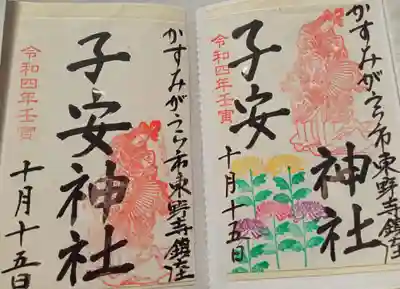 かすみがうら市東野寺鎮座
子安神社
令和四年壬寅
十月十五日
かすみがうら市東野寺鎮座
子安神社
令和四年壬寅
十月十五日